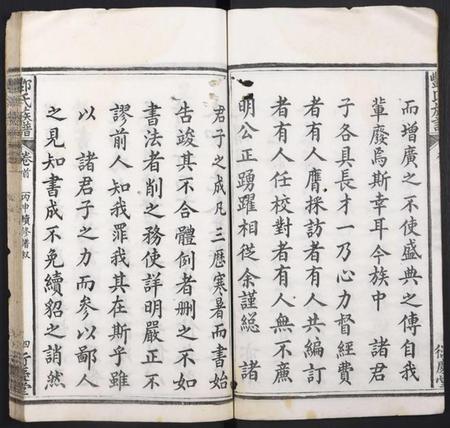 而增廣之不使盛典之傳自我
輩廢焉斯幸耳今族中 諸君
子各具長才一乃心力督經費
者有人膺採訪者有人共編訂
者有人任校對者有人無不廉
明公正踴躍相從余謹總 諸
君子之成凡三歷寒暑而書始
告竣其不合體例者刪之不如
書法者削之務使詳明嚴正不
謬前人知我罪我其在斯乎雖
以 諸君子之力而參以鄙人
之見知書成不免續貂之誚然
鄧氏族譜 卷首 丙申續修譜敘 四